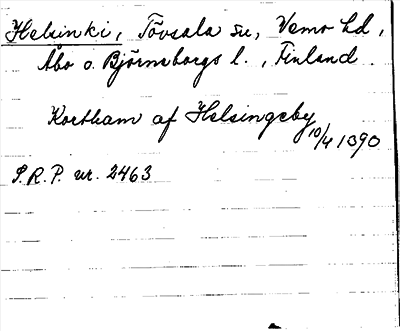 Helsinki, Tövsala sn, Vemo hd,
Åbo o. Björneborgs l., Finland.
Kortham af Helsingeby
10/4 1390
S.R.P. nr. 2463